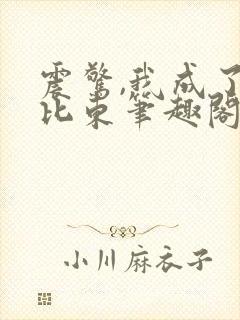 震惊,我成了
比东笔趣阁
小川麻衣子